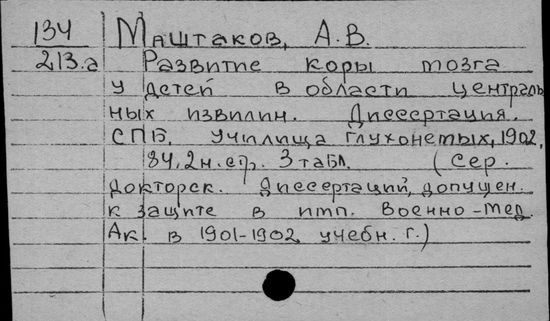 134 Маштаков, А.В.
213.а Развитие коры мозга
у детей в области централь
ных извилин. Диссертация.
СПБ, училища глухонемых, 1902,
84, 2 н. стр. 3 табл. (Сер.
докторск. диссертаций, допущен.
к защите в имп. Военно-мед.
Ак. в 1901-1902 учебн. г.)